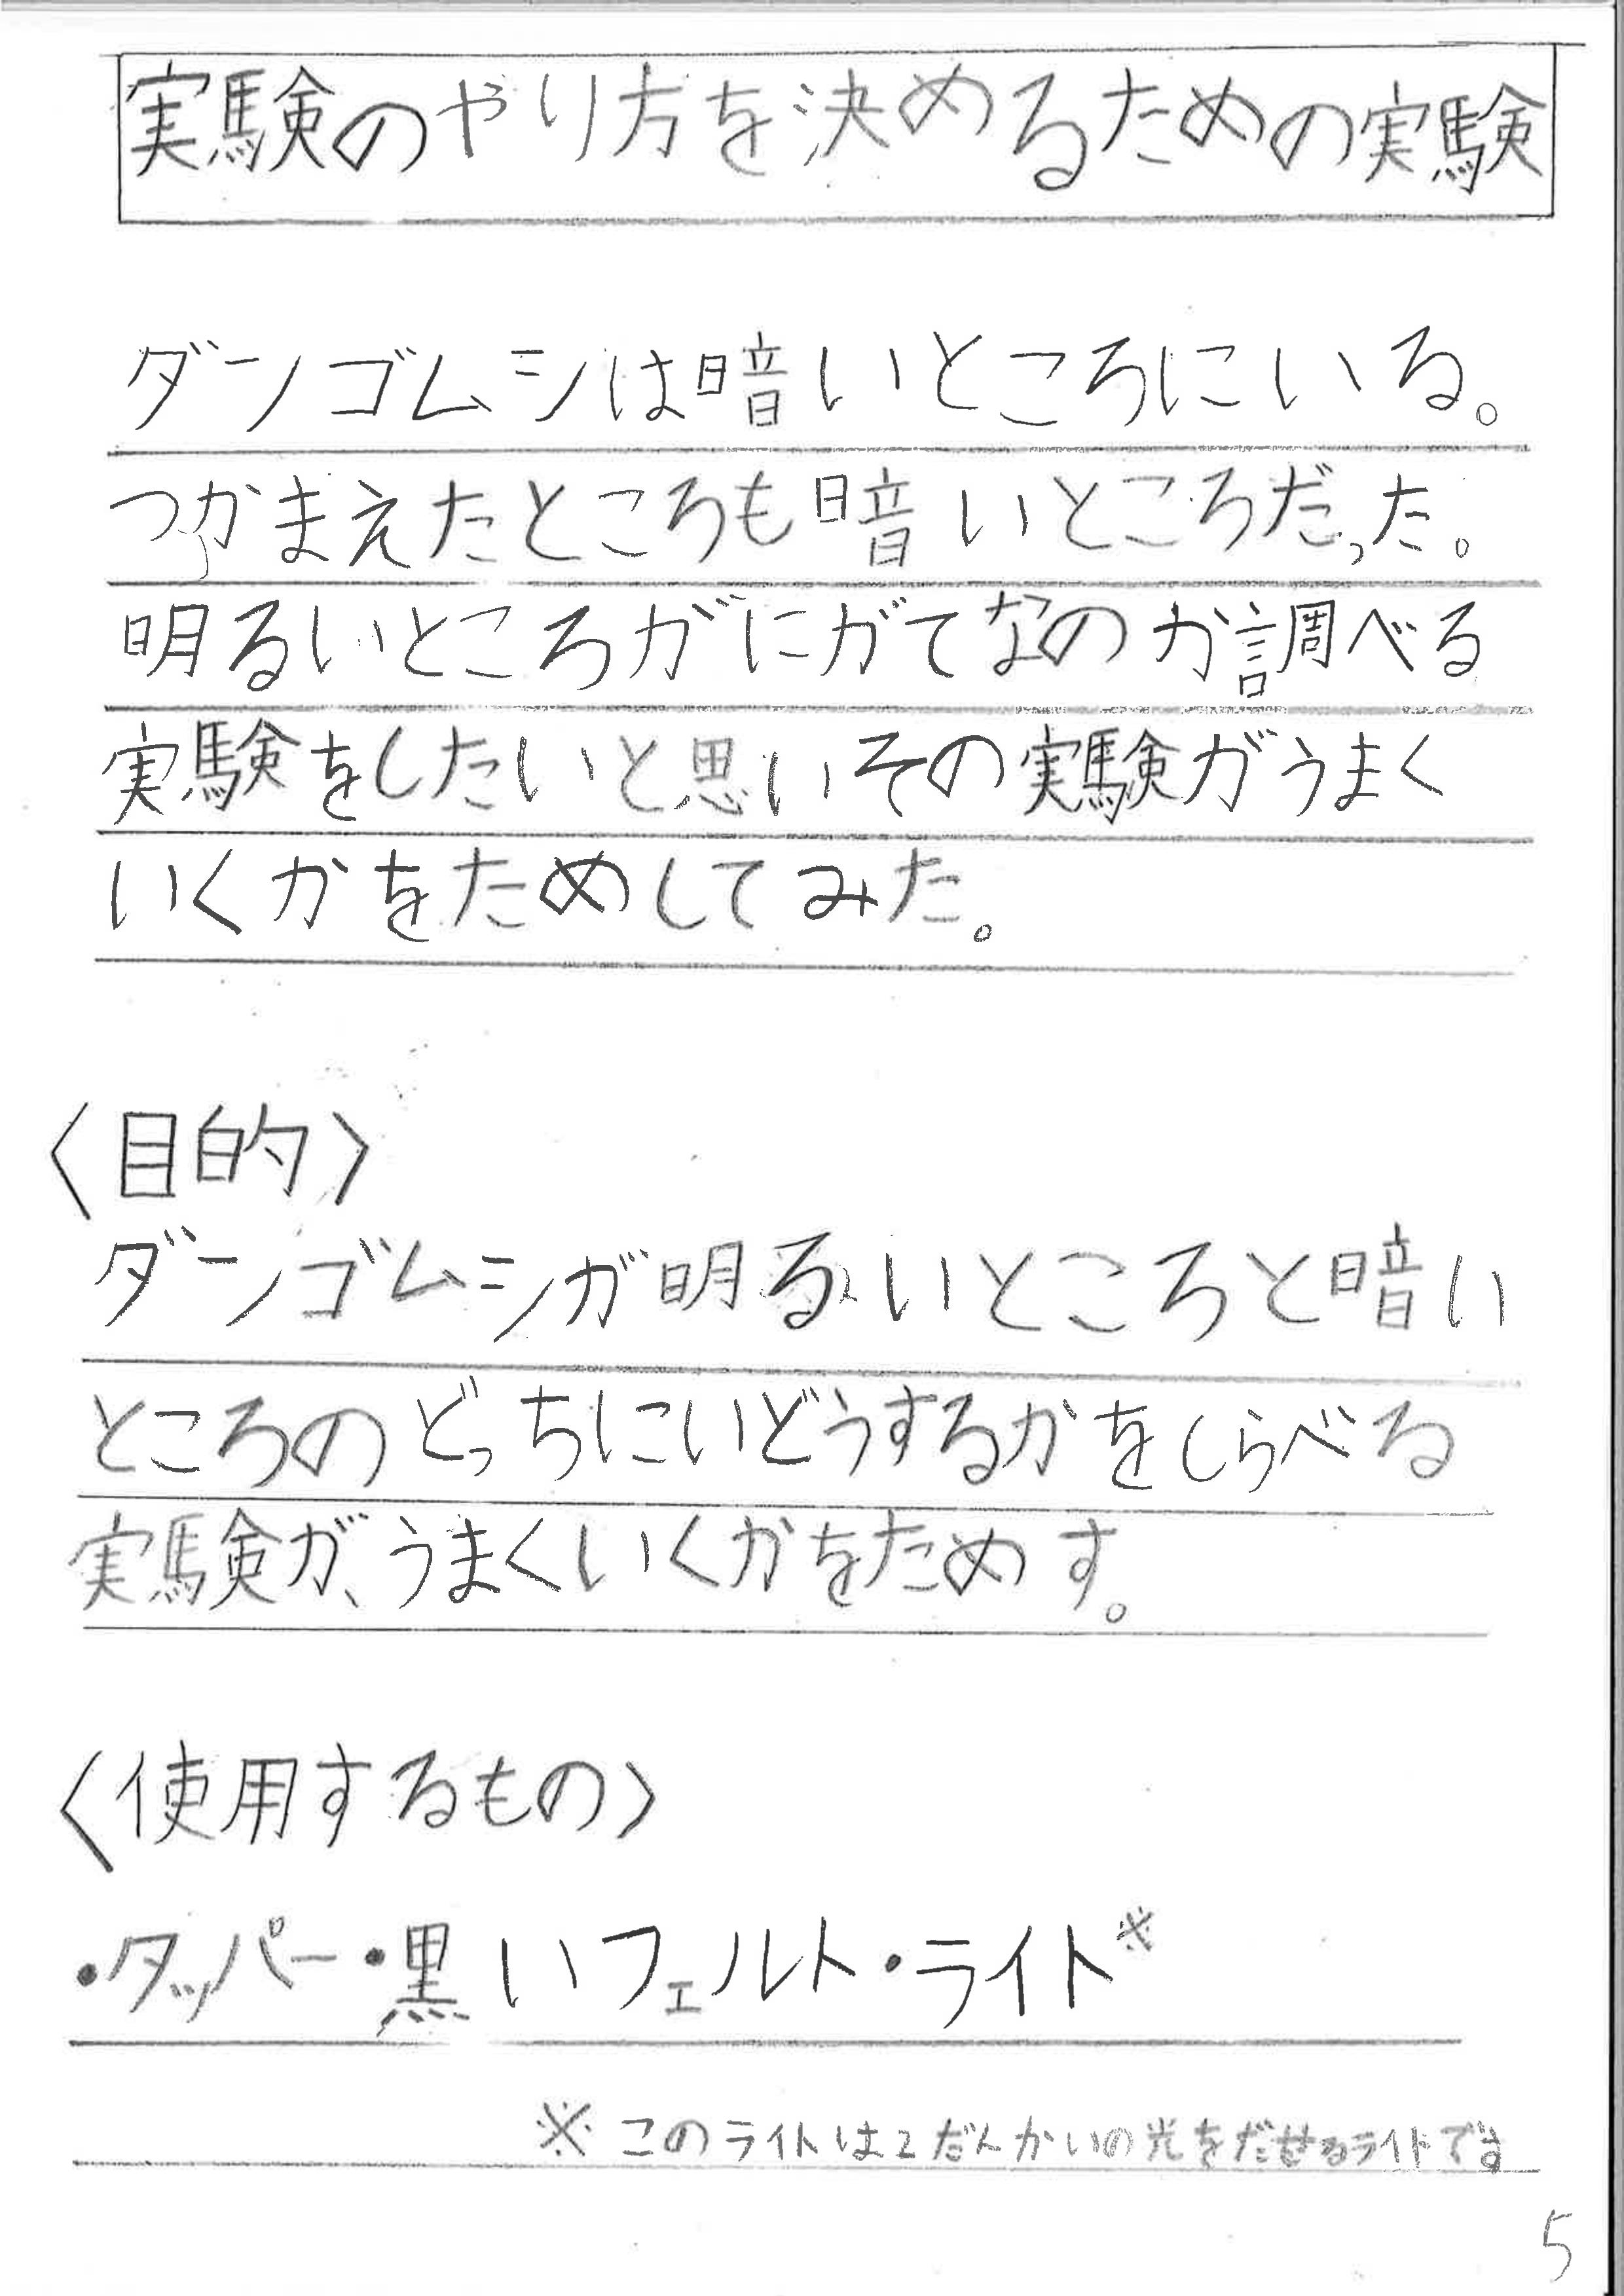 実験のやり方を決めるための実験
ダンゴムシは暗いところにいる。
つかまえたところも暗いところだった。
明るいところがにがてなのか調べる
実験をしたいと思いその実験がうまく
いくかをためしてみた。
〈目的〉
ダンゴムシが明るいところと暗い
ところのどっちにいどうするかをしらべる
実験が、うまくいくかをためす。
〈使用するもの〉
・タッパー・黒いフェルト・ライト※
※このライトは2だんかいの光をだせるライトです
5